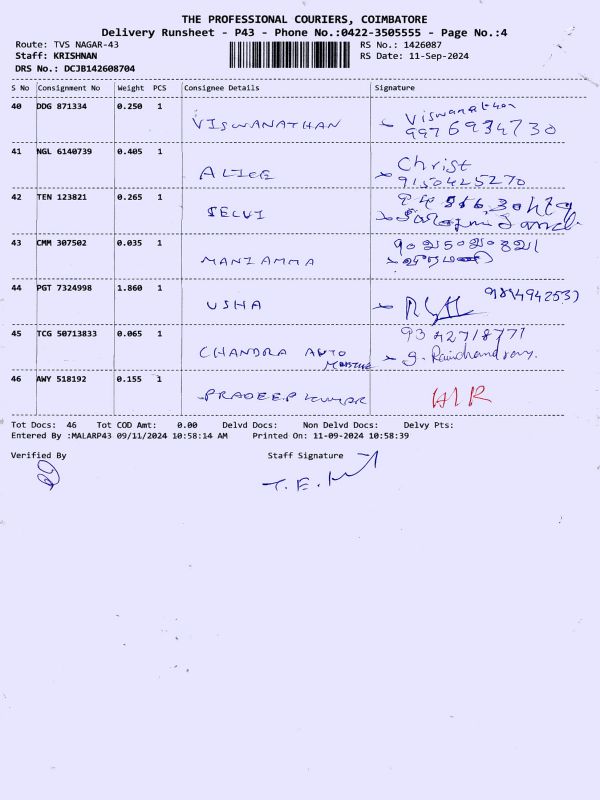 THE PROFESSIONAL COURIERS, COIMBATORE
Delivery Runsheet - P43 - Phone No.:0422-3505555 - Page No.:4
Route: TVS NAGAR-43 RS No.: 1426087
Staff: KRISHNAN RS Date: 11-Sep-2024
DRS No.: DCJB142608704
S No Consignment No Weight PCS Consignee Details Signature
40 DDG 871334 0.250 1 VISWANATHAN Viswanathan
9976934730
41 NGL 6140739 0.405 1 ALICE Christ
9150425270
42 TEN 123821 0.265 1 SELVI
43 CMM 307502 0.035 1 MANIAMMA
44 PGT 7324998 1.860 1 USHA
45 TCG 50713833 0.065 1 CHANDRA AUTO 9342718771
46 AWY 518192 0.155 1 PRADEEP KUMAR
Tot Docs: 46 Tot COD Amt: 0.00 Delvd Docs: Non Delvd Docs: Delvy Pts:
Entered By :MALARP43 09/11/2024 10:58:14 AM Printed On: 11-09-2024 10:58:39
Verified By Staff Signature